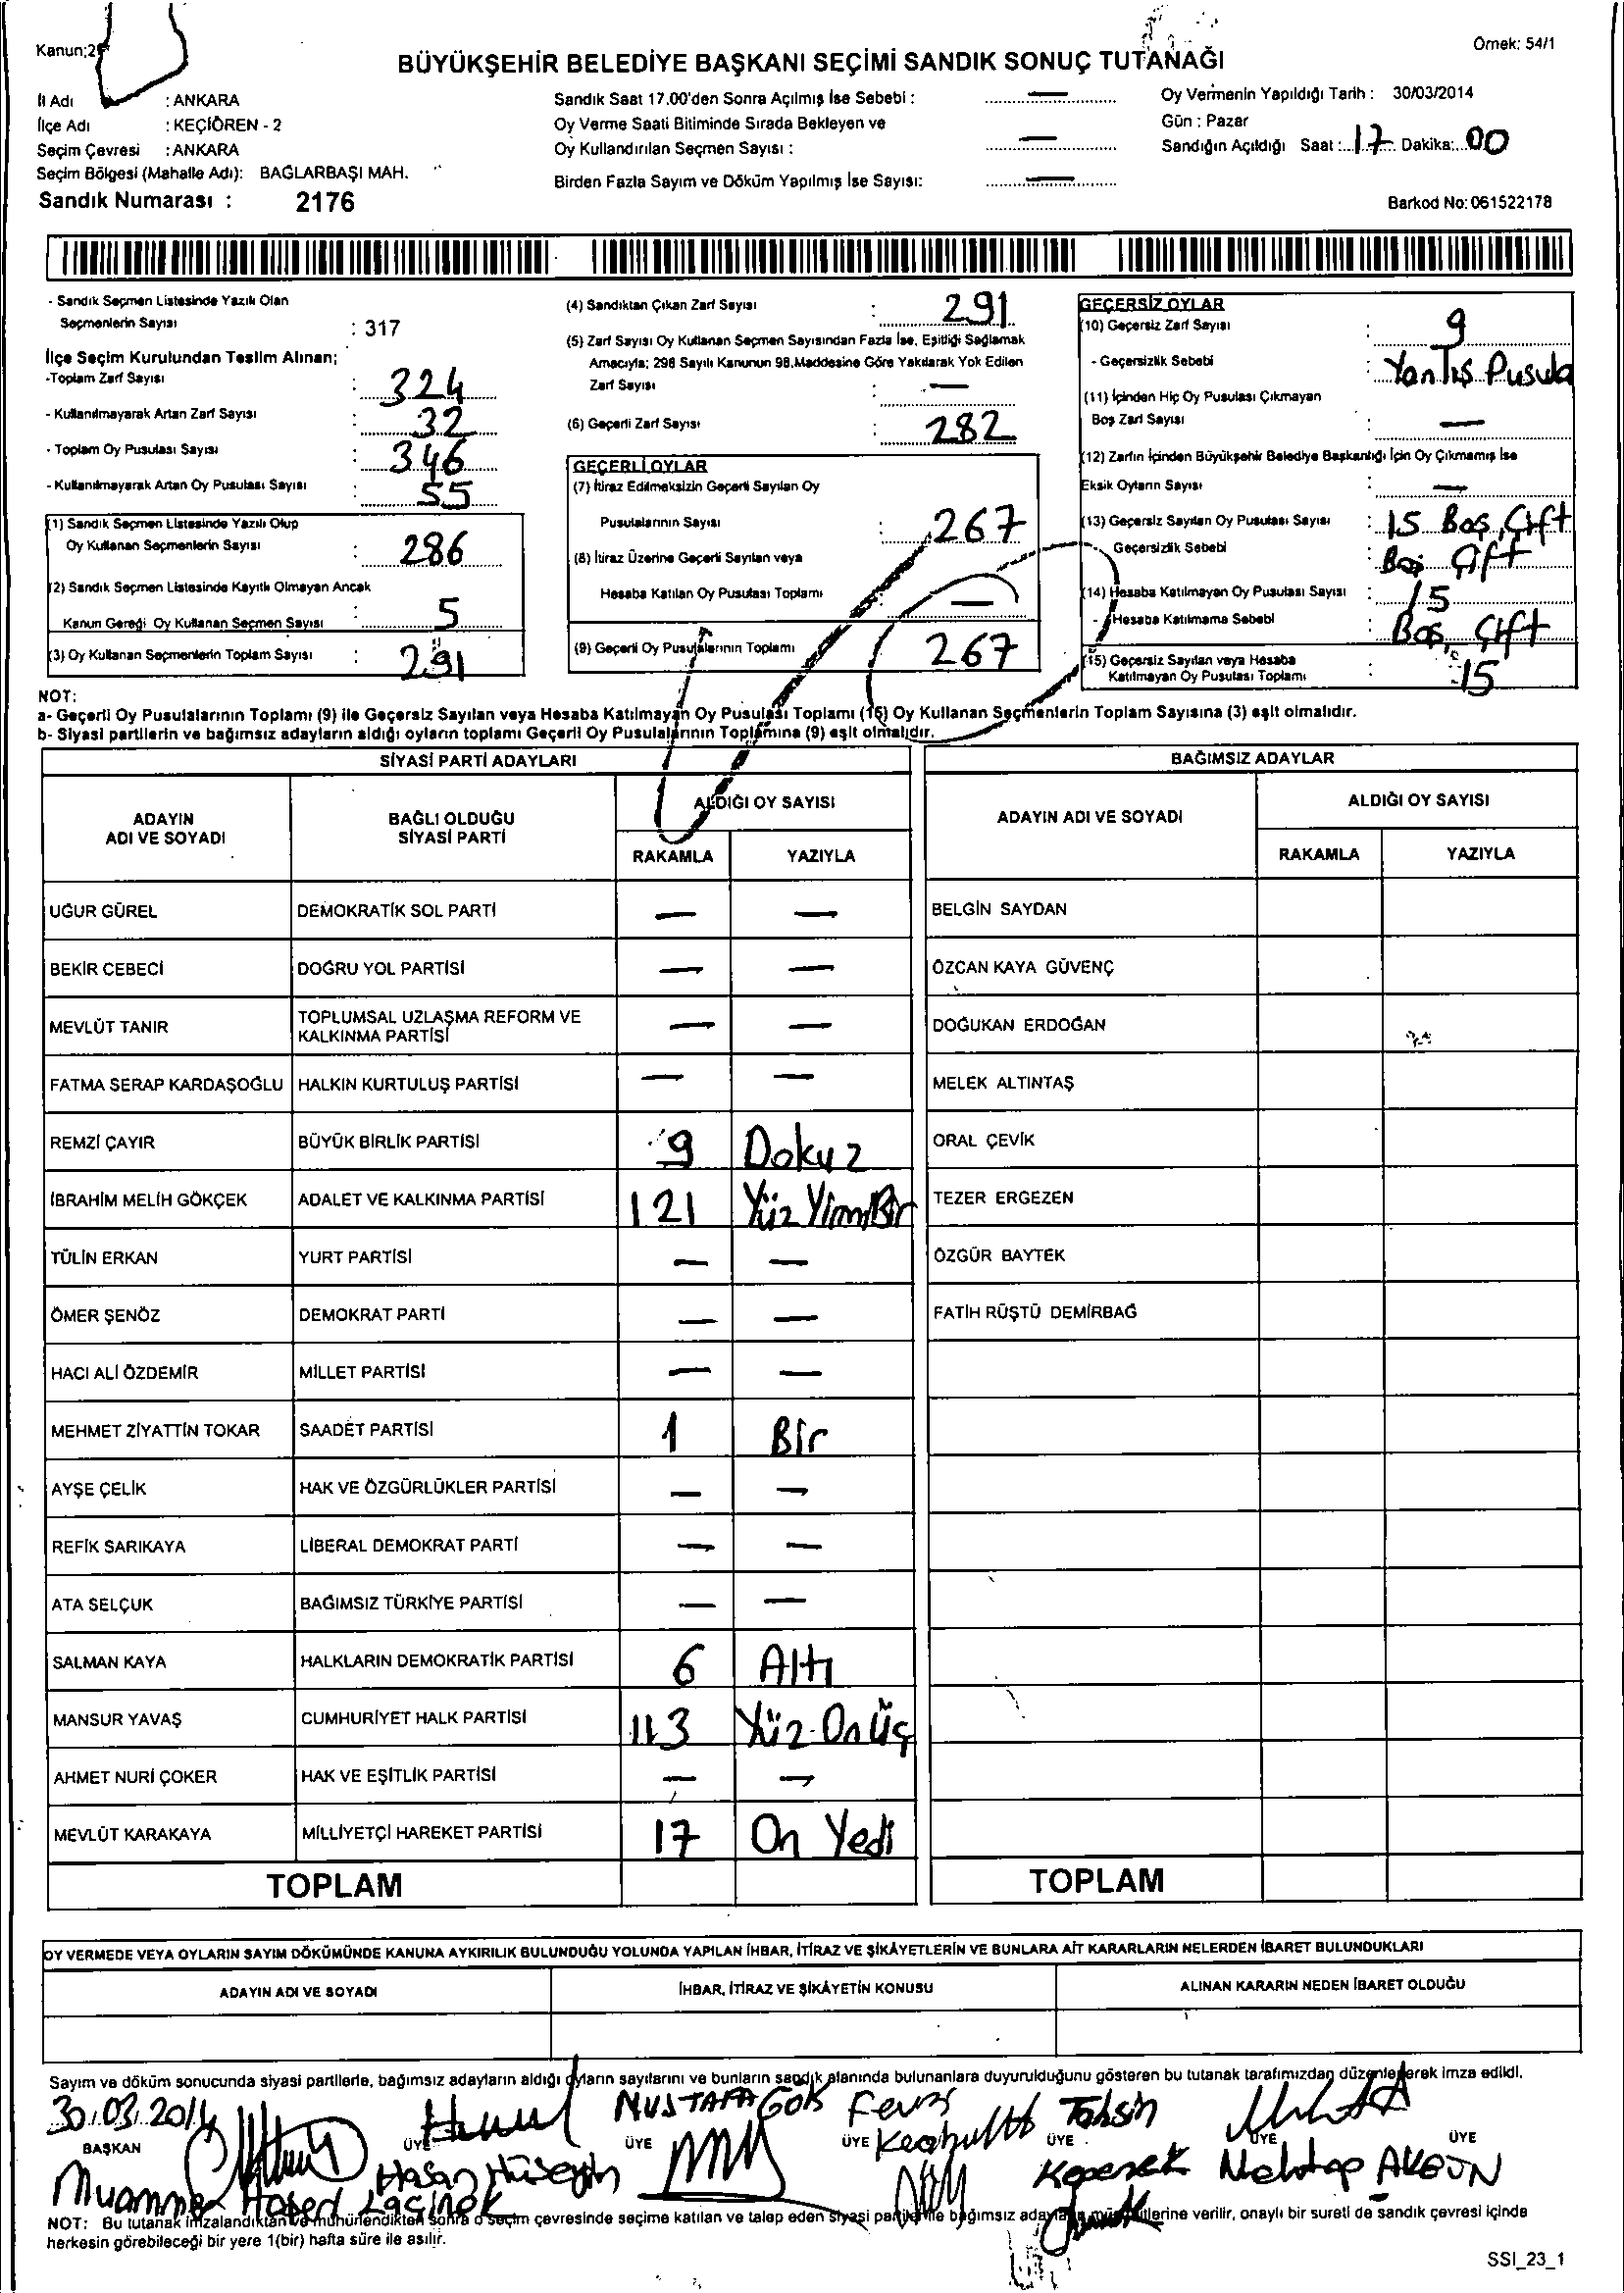 Kanun:2
Örnek: 54/1
BÜYÜKŞEHİR BELEDİYE BAŞKANI SEÇİMİ SANDIK SONUÇ TUTANAĞI
İl Adı : ANKARA
İlçe Adı : KEÇİÖREN - 2
Seçim Çevresi : ANKARA
Seçim Bölgesi (Mahalle Adı): BAĞLARBAŞI MAH.
Sandık Numarası : 2176
Sandık Saat 17.00'den Sonra Açılmış İse Sebebi : —
Oy Verme Saati Bitiminde Sırada Bekleyen ve
Oy Kullandırılan Seçmen Sayısı : —
Birden Fazla Sayım ve Döküm Yapılmış İse Sayısı: —
Oy Vermenin Yapıldığı Tarih : 30/03/2014
Gün : Pazar
Sandığın Açıldığı Saat : 17 Dakika: 00
Barkod No: 061522178
- Sandık Seçmen Listesinde Yazılı Olan
Seçmenlerin Sayısı : 317
İlçe Seçim Kurulundan Teslim Alınan;
-Toplam Zarf Sayısı : 324
- Kullanılmayarak Artan Zarf Sayısı : 32
- Toplam Oy Pusulası Sayısı : 346
- Kullanılmayarak Artan Oy Pusulası Sayısı : 55
(1) Sandık Seçmen Listesinde Yazılı Olup
Oy Kullanan Seçmenlerin Sayısı : 286
(2) Sandık Seçmen Listesinde Kayıtlı Olmayan Ancak
Kanun Gereği Oy Kullanan Seçmen Sayısı : 5
(3) Oy Kullanan Seçmenlerin Toplam Sayısı : 291
(4) Sandıktan Çıkan Zarf Sayısı : 291
(5) Zarf Sayısı Oy Kullanan Seçmen Sayısından Fazla İse, Eşitliği Sağlamak
Amacıyla; 298 Sayılı Kanunun 98.Maddesine Göre Yakılarak Yok Edilen
Zarf Sayısı : —
(6) Geçerli Zarf Sayısı : 282
GEÇERLİ OYLAR
(7) İtiraz Edilmeksizin Geçerli Sayılan Oy
Pusulalarının Sayısı : 267
(8) İtiraz Üzerine Geçerli Sayılan veya
Hesaba Katılan Oy Pusulası Toplamı : —
(9) Geçerli Oy Pusulalarının Toplamı 267
GEÇERSİZ OYLAR
(10) Geçersiz Zarf Sayısı : 9
- Geçersizlik Sebebi : Yanlış Pusula
(11) İçinden Hiç Oy Pusulası Çıkmayan
Boş Zarf Sayısı : —
(12) Zarfın İçinden Büyükşehir Belediye Başkanlığı İçin Oy Çıkmamış İse
Eksik Oyların Sayısı : —
(13) Geçersiz Sayılan Oy Pusulası Sayısı : 15 Boş, Çift
Geçersizlik Sebebi : Boş Çift
(14) Hesaba Katılmayan Oy Pusulası Sayısı : 15
- Hesaba Katılmama Sebebi : Boş, Çift
(15) Geçersiz Sayılan veya Hesaba
Katılmayan Oy Pusulası Toplamı : 15
NOT:
a- Geçerli Oy Pusulalarının Toplamı (9) ile Geçersiz Sayılan veya Hesaba Katılmayan Oy Pusulası Toplamı (15) Oy Kullanan Seçmenlerin Toplam Sayısına (3) eşit olmalıdır.
b- Siyasi partilerin ve bağımsız adayların aldığı oyların toplamı Geçerli Oy Pusulalarının Toplamına (9) eşit olmalıdır.
SİYASİ PARTİ ADAYLARI
ADAYIN ADI VE SOYADI
BAĞLI OLDUĞU SİYASİ PARTİ
ALDIĞI OY SAYISI
RAKAMLA YAZIYLA
UĞUR GÜREL DEMOKRATİK SOL PARTİ — —
BEKİR CEBECİ DOĞRU YOL PARTİSİ — —
MEVLÜT TANIR TOPLUMSAL UZLAŞMA REFORM VE KALKINMA PARTİSİ — —
FATMA SERAP KARDAŞOĞLU HALKIN KURTULUŞ PARTİSİ — —
REMZİ ÇAYIR BÜYÜK BİRLİK PARTİSİ 9 Dokuz
İBRAHİM MELİH GÖKÇEK ADALET VE KALKINMA PARTİSİ 121 Yüz YirmiBir
TÜLİN ERKAN YURT PARTİSİ — —
ÖMER ŞENÖZ DEMOKRAT PARTİ — —
HACI ALİ ÖZDEMİR MİLLET PARTİSİ — —
MEHMET ZİYATTİN TOKAR SAADET PARTİSİ 1 Bir
AYŞE ÇELİK HAK VE ÖZGÜRLÜKLER PARTİSİ — —
REFİK SARIKAYA LİBERAL DEMOKRAT PARTİ — —
ATA SELÇUK BAĞIMSIZ TÜRKİYE PARTİSİ — —
SALMAN KAYA HALKLARIN DEMOKRATİK PARTİSİ 6 Altı
MANSUR YAVAŞ CUMHURİYET HALK PARTİSİ 113 Yüz On Üç
AHMET NURİ ÇOKER HAK VE EŞİTLİK PARTİSİ — —
MEVLÜT KARAKAYA MİLLİYETÇİ HAREKET PARTİSİ 17 On Yedi
TOPLAM
BAĞIMSIZ ADAYLAR
ADAYIN ADI VE SOYADI
ALDIĞI OY SAYISI
RAKAMLA YAZIYLA
BELGİN SAYDAN
ÖZCAN KAYA GÜVENÇ
DOĞUKAN ERDOĞAN
MELEK ALTINTAŞ
ORAL ÇEVİK
TEZER ERGEZEN
ÖZGÜR BAYTEK
FATİH RÜŞTÜ DEMİRBAĞ
TOPLAM
OY VERMEDE VEYA OYLARIN SAYIM DÖKÜMÜNDE KANUNA AYKIRILIK BULUNDUĞU YOLUNDA YAPILAN İHBAR, İTİRAZ VE ŞİKÂYETLERİN VE BUNLARA AİT KARARLARIN NELERDEN İBARET BULUNDUKLARI
ADAYIN ADI VE SOYADI İHBAR, İTİRAZ VE ŞİKÂYETİN KONUSU ALINAN KARARIN NEDEN İBARET OLDUĞU
Sayım ve döküm sonucunda siyasi partilerle, bağımsız adayların aldığı oyların sayılarını ve bunların sandık alanında bulunanlara duyurulduğunu gösteren bu tutanak tarafımızdan düzenlenerek imza edildi.
30.03.2014 MUSTAFA GÖK Fevzi Tahsin
BAŞKAN ÜYE ÜYE ÜYE ÜYE ÜYE ÜYE
Hasan Hüseyin AKGÜN
NOT: Bu tutanak imzalandıktan ve mühürlendikten sonra o seçim çevresinde seçime katılan ve talep eden siyasi partilerle bağımsız adayların müşahitlerine verilir, onaylı bir sureti de sandık çevresi içinde
herkesin görebileceği bir yere 1(bir) hafta süre ile asılır.
SSI_23_1